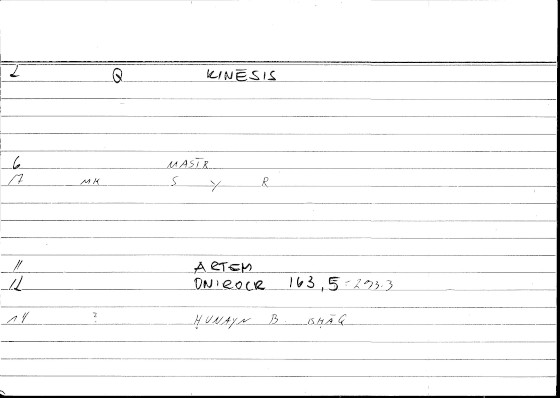 2 Q KINĒSIS
6 MASĪR
17 MH S Y R
11 ARTEM
12 ONIROCR 163,5 = 293.3
14 ? ḤUNAYN B. ISḤĀQ